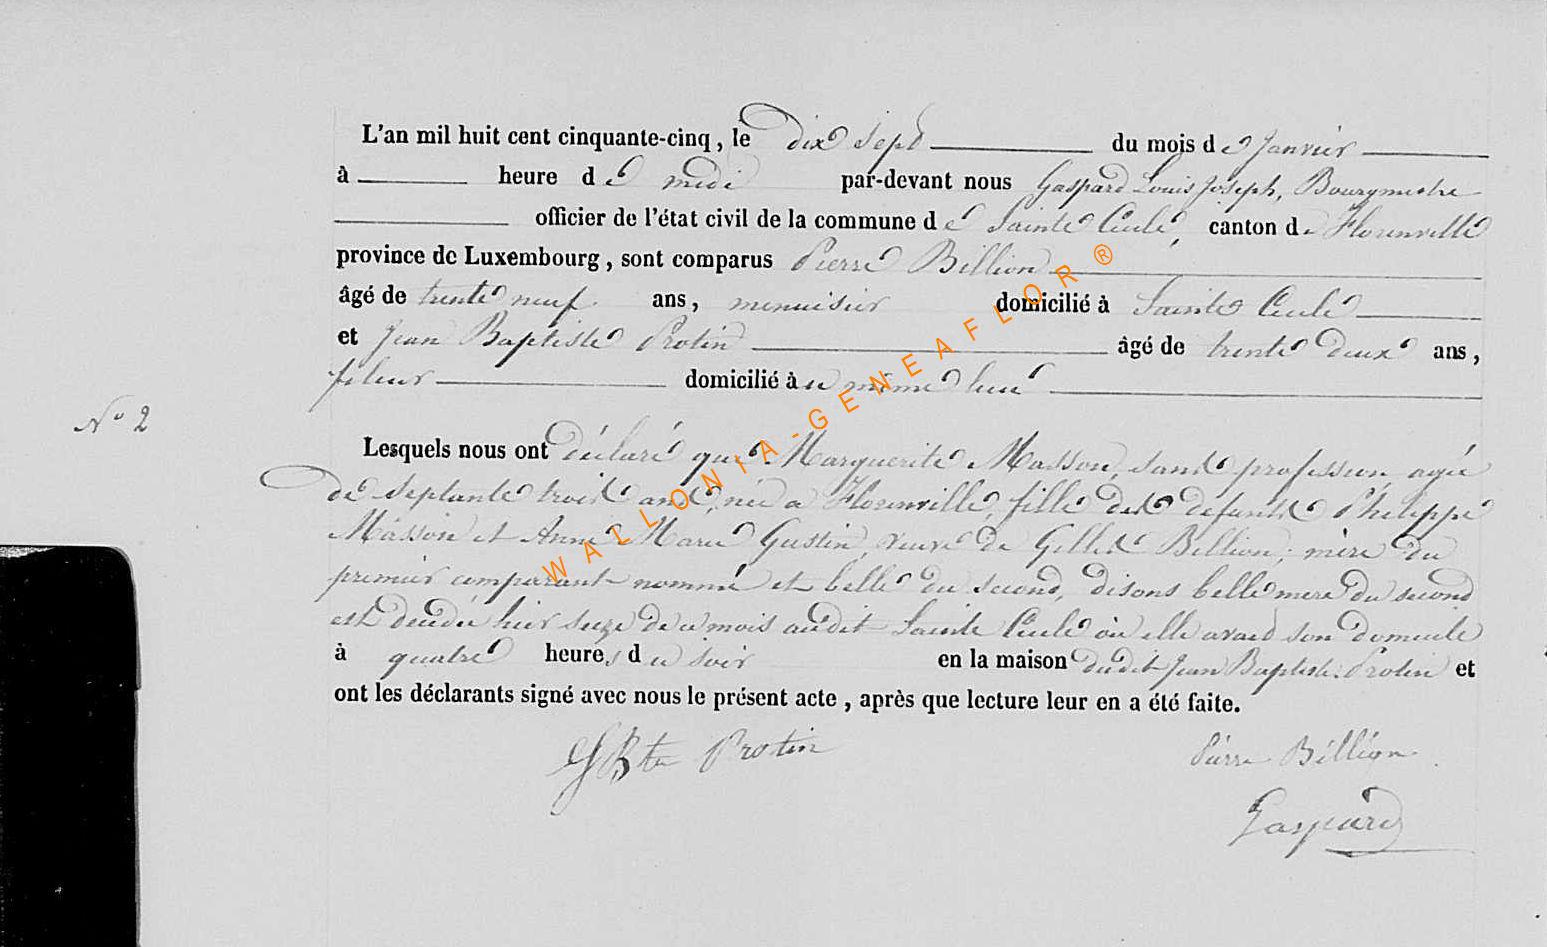 L'an mil huit cent cinquante-cinq, le dix sept du mois de Janvier
à heure de midi par-devant nous Gaspard Louis Joseph, Bourgmestre
officier de l'état civil de la commune de Sainte Cécile, canton de Florenville
province de Luxembourg, sont comparus Pierre Billion
âgé de trente neuf ans, menuisier domicilié à Sainte Cécile
et Jean Baptiste Protin âgé de trente deux ans,
fileur domicilié à ce même lieu
N° 2
Lesquels nous ont déclaré que Marguerite Masson, sans profession, agée
de septante trois ans, née a Florenville, fille des defunts Philippe
Masson et Anne Marie Gustin, veuve de Gilles Billion, mère du
premier comparant nommé et belle du second, disons belle mere du second
est décédée hier seize de ce mois audit Sainte Cécile où elle avait son domicile
à quatre heures du soir en la maison dudit Jean Baptiste Protin et
ont les déclarants signé avec nous le présent acte, après que lecture leur en a été faite.
JBte Protin Pierre Billion
Gaspard
WALLONIA-GENEAFLOR®